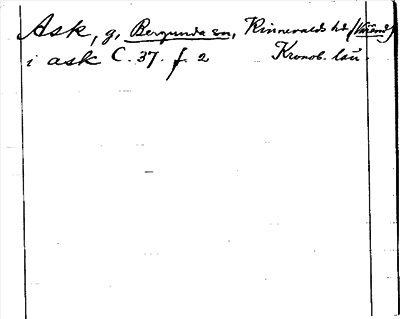 Ask, g, Bergunda sn, Kinnevalds hd (Värend)
i ask C. 37. f. 2 Kronob. län.